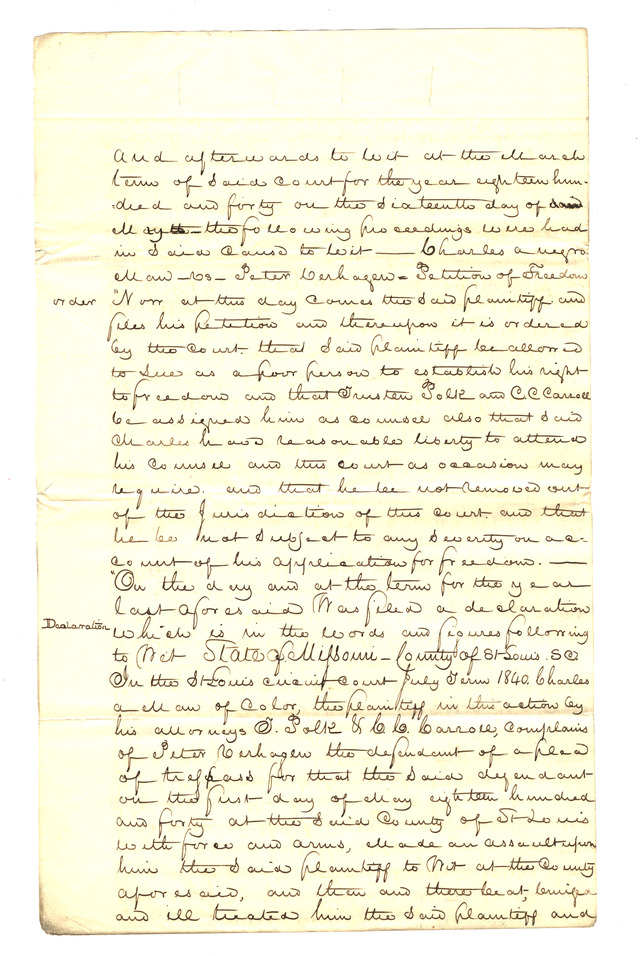 And afterwards to wit at the March
term of said Court for the year eighteen hun-
-dred and forty on the Sixteenth day of
May the following proceedings were had
in Said Cause to wit — Charles a negro
Man - vs - Peter Verhagen - Petition of Freedom
order "Now at this day comes the Said plaintiff and
files his petition and thereupon it is ordered
by the Court. that Said plaintiff be allowed
to Sue as a poor person to establish his right
to freedom and that Trusten Polk and C.C. Carroll
be assigned him as counsel also that said
Charles have reasonable liberty to attend
his Counsel and this court as occasion may
require. and that he be not removed out
of the Jurisdiction of this court. and that
he be not Subject to any Severity on ac-
count of his application for freedom. —
"On the day and at the term for the year
last aforesaid Was filed a declaration
Declaration which is in the words and figures following
to Wit State of Missouri - County of St Louis. SC
In the St Louis circuit Court July Term 1840. Charles
a Man of Color, the plaintiff in this action by
his attorneys T. Polk & C. C. Carroll, Complains
of Peter Verhagen the defendant of a plea
of trespass for that the said defendant
on the first day of May eighteen hundred
and forty at the Said County of St Louis
with force and arms, Made an assault upon
him the Said plaintiff to Wit at the County
aforesaid, and then and there beat, bruised
and ill treated him the Said plaintiff and